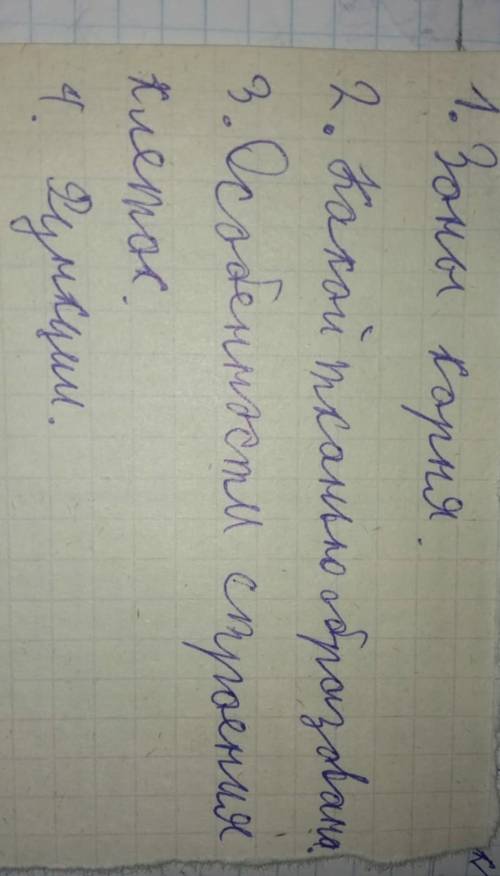 1. Зоны корня.
2. Какой тканью образована.
3. Особенности строения
клеток.
4. Функции.